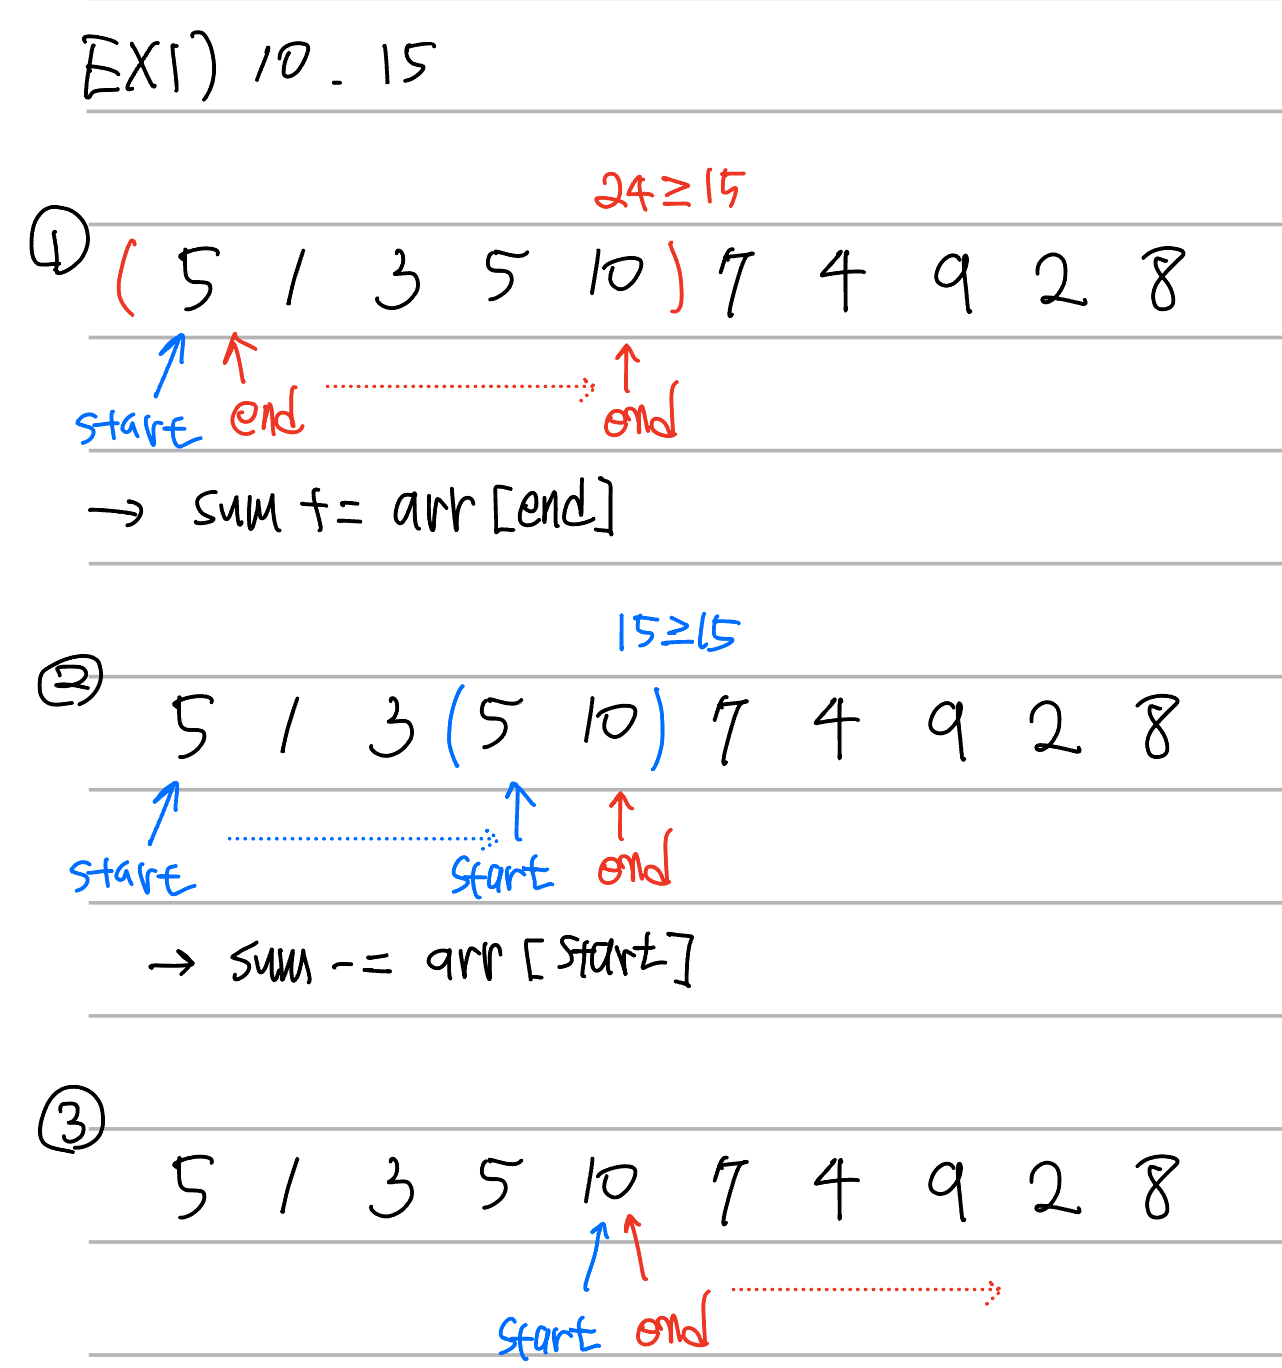 EX1) 10 - 15
24≥15
① ( 5 1 3 5 10 ) 7 4 9 2 8
start end end
→ sum += arr [end]
15≥15
② 5 1 3 ( 5 10 ) 7 4 9 2 8
start start end
→ sum -= arr [start]
③ 5 1 3 5 10 7 4 9 2 8
start end